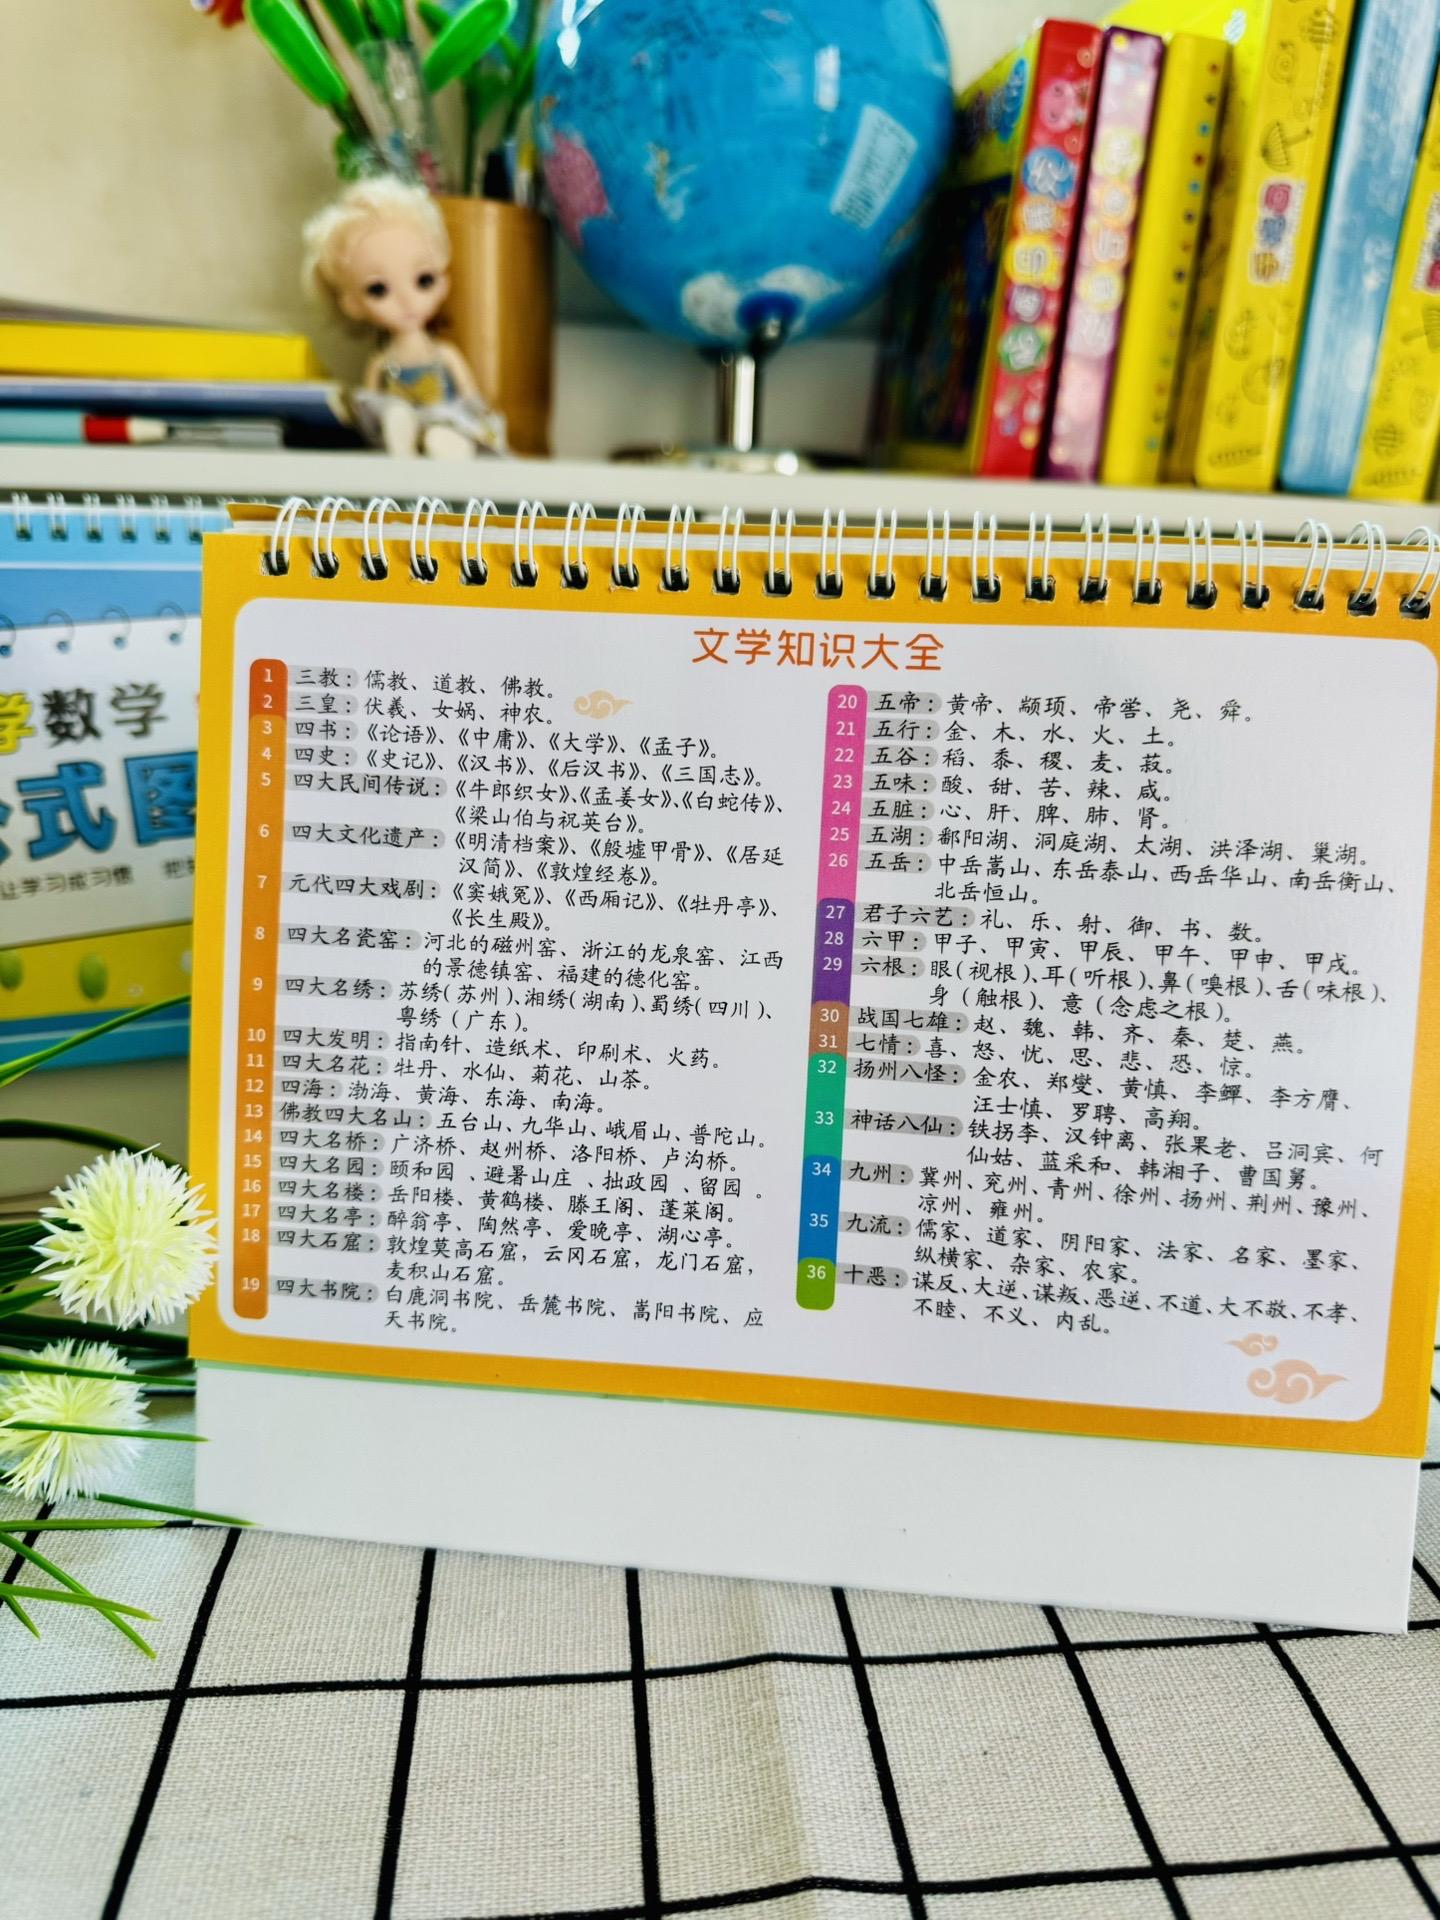 文学知识大全
1 三教：儒教、道教、佛教。
2 三皇：伏羲、女娲、神农。
3 四书：《论语》、《中庸》、《大学》、《孟子》。
4 四史：《史记》、《汉书》、《后汉书》、《三国志》。
5 四大民间传说：《牛郎织女》、《孟姜女》、《白蛇传》、
《梁山伯与祝英台》。
6 四大文化遗产：《明清档案》、《殷墟甲骨》、《居延
汉简》、《敦煌经卷》。
7 元代四大戏剧：《窦娥冤》、《西厢记》、《牡丹亭》、
《长生殿》。
8 四大名瓷窑：河北的磁州窑、浙江的龙泉窑、江西
的景德镇窑、福建的德化窑。
9 四大名绣：苏绣(苏州)、湘绣(湖南)、蜀绣(四川)、
粤绣(广东)。
10 四大发明：指南针、造纸术、印刷术、火药。
11 四大名花：牡丹、水仙、菊花、山茶。
12 四海：渤海、黄海、东海、南海。
13 佛教四大名山：五台山、九华山、峨眉山、普陀山。
14 四大名桥：广济桥、赵州桥、洛阳桥、卢沟桥。
15 四大名园：颐和园、避暑山庄、拙政园、留园。
16 四大名楼：岳阳楼、黄鹤楼、滕王阁、蓬莱阁。
17 四大名亭：醉翁亭、陶然亭、爱晚亭、湖心亭。
18 四大石窟：敦煌莫高石窟，云冈石窟，龙门石窟，
麦积山石窟。
19 四大书院：白鹿洞书院、岳麓书院、嵩阳书院、应
天书院。
20 五帝：黄帝、颛顼、帝喾、尧、舜。
21 五行：金、木、水、火、土。
22 五谷：稻、黍、稷、麦、菽。
23 五味：酸、甜、苦、辣、咸。
24 五脏：心、肝、脾、肺、肾。
25 五湖：鄱阳湖、洞庭湖、太湖、洪泽湖、巢湖。
26 五岳：中岳嵩山、东岳泰山、西岳华山、南岳衡山、
北岳恒山。
27 君子六艺：礼、乐、射、御、书、数。
28 六甲：甲子、甲寅、甲辰、甲午、甲申、甲戌。
29 六根：眼(视根)、耳(听根)、鼻(嗅根)、舌(味根)、
身(触根)、意(念虑之根)。
30 战国七雄：赵、魏、韩、齐、秦、楚、燕。
31 七情：喜、怒、忧、思、悲、恐、惊。
32 扬州八怪：金农、郑燮、黄慎、李鱓、李方膺、
汪士慎、罗聘、高翔。
33 神话八仙：铁拐李、汉钟离、张果老、吕洞宾、何
仙姑、蓝采和、韩湘子、曹国舅。
34 九州：冀州、兖州、青州、徐州、扬州、荆州、豫州、
凉州、雍州。
35 九流：儒家、道家、阴阳家、法家、名家、墨家、
纵横家、杂家、农家。
36 十恶：谋反、大逆、谋叛、恶逆、不道、大不敬、不孝、
不睦、不义、内乱。
学数学
公式图
让学习成习惯